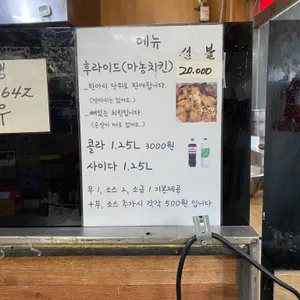 메뉴
선불
후라이드(마농치킨) 20.000
- 한마리 단위로 판매합니다.
(반마리는 없어요.)
- 뼈있는 치킨입니다.
(순살이 따로 없어요.)
콜라 1.25L 3000원
사이다 1.25L
무 1, 소스 2, 소금 1 기본제공
+무, 소스 추가시 각각 500원 입니다.
64Z
우